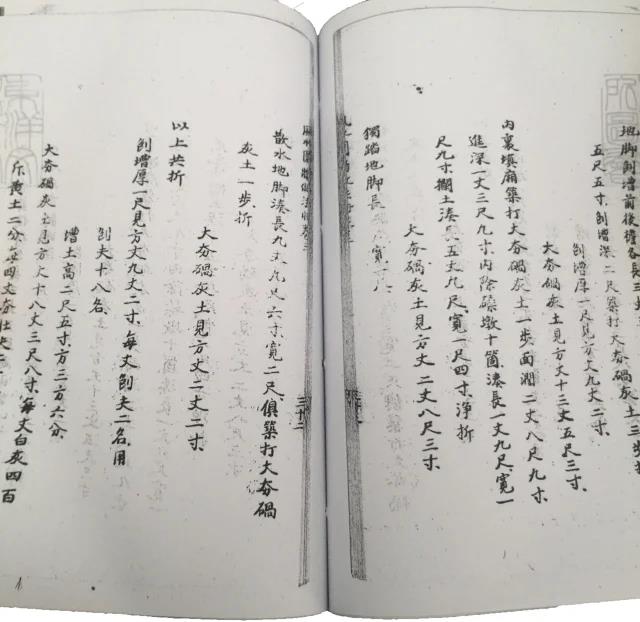 地脚刨槽前後檐各長三丈
五尺五寸刨槽深二尺築打大夯硪灰土三步折
刨槽厚一尺見方丈九丈二寸
大夯硪灰土見方丈十三丈五尺三寸
內裏填廂築打大夯硪灰土一步面濶二丈八尺九寸
進深一丈三尺九寸內除磉墩十箇湊長一丈九尺寬一
尺九寸攔土湊長五丈九尺寬一尺四寸淨折
大夯硪灰土見方丈二丈八尺三寸
獨踏地脚長 寬一尺
散水地脚湊長九丈九尺六寸寬二尺俱築打大夯硪
灰土一步折
大夯硪灰土見方丈二丈二寸
以上共折
刨槽厚一尺見方丈九丈二寸每丈刨夫二名用
刨夫十八名
槽土高二尺五寸方三方六分
大夯硪灰土見方丈十八丈三尺八寸每丈白灰四百
斤黄土二分
三十二